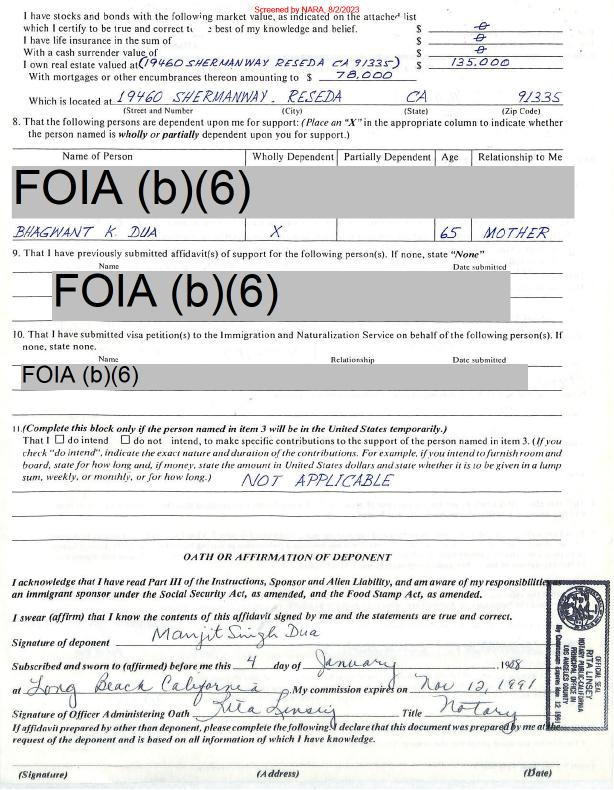 Screened by NARA, 8/2/2023
I have stocks and bonds with the following market value, as indicated on the attached list
which I certify to be true and correct to best of my knowledge and belief. $ 0
I have life insurance in the sum of $ 0
With a cash surrender value of $ 0
I own real estate valued at (19460 SHERMANWAY RESEDA CA 91335) $ 135.000
With mortgages or other encumbrances thereon amounting to $ 78,000
Which is located at 19460 SHERMANWAY. RESEDA CA 91335
(Street and Number) (City) (State) (Zip Code)
8. That the following persons are dependent upon me for support: (Place an "X" in the appropriate column to indicate whether
the person named is wholly or partially dependent upon you for support.)
Name of Person Wholly Dependent Partially Dependent Age Relationship to Me
FOIA (b)(6)
BHAGWANT K. DUA X 65 MOTHER
9. That I have previously submitted affidavit(s) of support for the following person(s). If none, state "None"
Name Date submitted
FOIA (b)(6)
10. That I have submitted visa petition(s) to the Immigration and Naturalization Service on behalf of the following person(s). If
none, state none.
Name Relationship Date submitted
FOIA (b)(6)
11.(Complete this block only if the person named in item 3 will be in the United States temporarily.)
That I ☐ do intend ☐ do not intend, to make specific contributions to the support of the person named in item 3. (If you
check "do intend", indicate the exact nature and duration of the contributions. For example, if you intend to furnish room and
board, state for how long and, if money, state the amount in United States dollars and state whether it is to be given in a lump
sum, weekly, or monthly, or for how long.) NOT APPLICABLE
OATH OR AFFIRMATION OF DEPONENT
I acknowledge that I have read Part III of the Instructions, Sponsor and Alien Liability, and am aware of my responsibilities as
an immigrant sponsor under the Social Security Act, as amended, and the Food Stamp Act, as amended.
I swear (affirm) that I know the contents of this affidavit signed by me and the statements are true and correct.
Signature of deponent Manjit Singh Dua
Subscribed and sworn to (affirmed) before me this 4 day of January, 1988
at Long Beach California. My commission expires on Nov 12, 1991
Signature of Officer Administering Oath Rita Title Notary
If affidavit prepared by other than deponent, please complete the following: I declare that this document was prepared by me at the
request of the deponent and is based on all information of which I have knowledge.
(Signature) (Address) (Date)
OFFICIAL SEAL
RITA LINSEY
NOTARY PUBLIC-CALIFORNIA
PRINCIPAL OFFICE IN
LOS ANGELES COUNTY
My Commission Expires Nov 12 1991